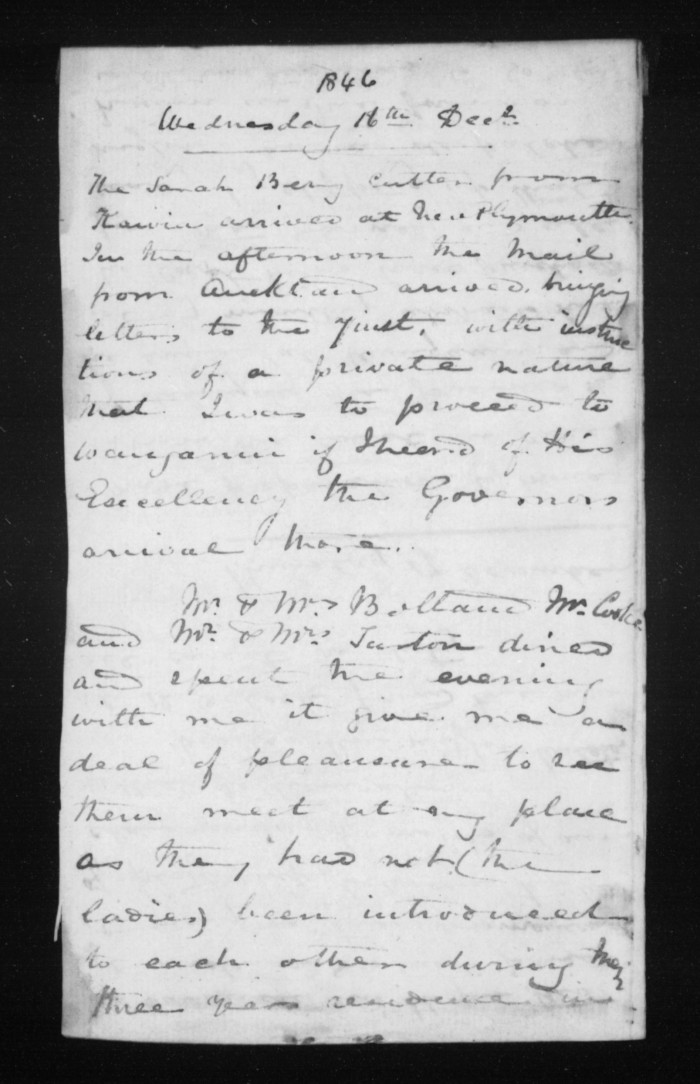 1846
Wednesday 16th Decr.
The Sarah Berry cutter from
Kawia arrived at New Plymouth.
In the afternoon the Mail
from Auckland arrived, bringing
letters to the 7 inst, with instruc
tions of a private nature
that I was to proceed to
Wanganui if I heard of His
Excellency the Governors
arrival there.
Mr. & Mrs Bolland Mr. Cooke
and Mr. & Mrs Turton dined
and spent the evening
with me it give me a
deal of pleausure to see
them meet at my place
as they had not (the
ladies) been introduced
to each other during they
three years residence in